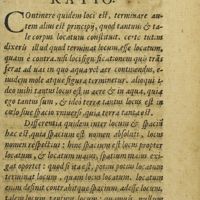 RATIO.
Continere quidem loci est, terminare au-
tem alius est principij, quod tantum et ta-
le corpus locatum constituit. certe tutius
dixeris illud quod terminat locum, esse locatum,
quam e contra. nisi loci significationem quis trãs
ferat ad vas in quo aqua vel aer continentur,
eiusdem mole atque figura terminetur. alioqui
deo mihi tantus locus est in aere & in aqua, quia
ego tantus sum, & ideo terra tantus locus est in
cælo sine spacio vniuersi, quia terra tanta est.
Differentia quidem inter locum & spacium,
est hæc, quod spacium est nomen absolutum, locus
nomen respectiuum: hinc spacium est locus propter
locatum, & locatum maius, spacium maius exi-
gat oportet: quod si ita est, potius locatum
terminat locum, quam locus locatum. locatum
enim definit contrahitque spacium, adesse locum,
talem locum, tantum locum,